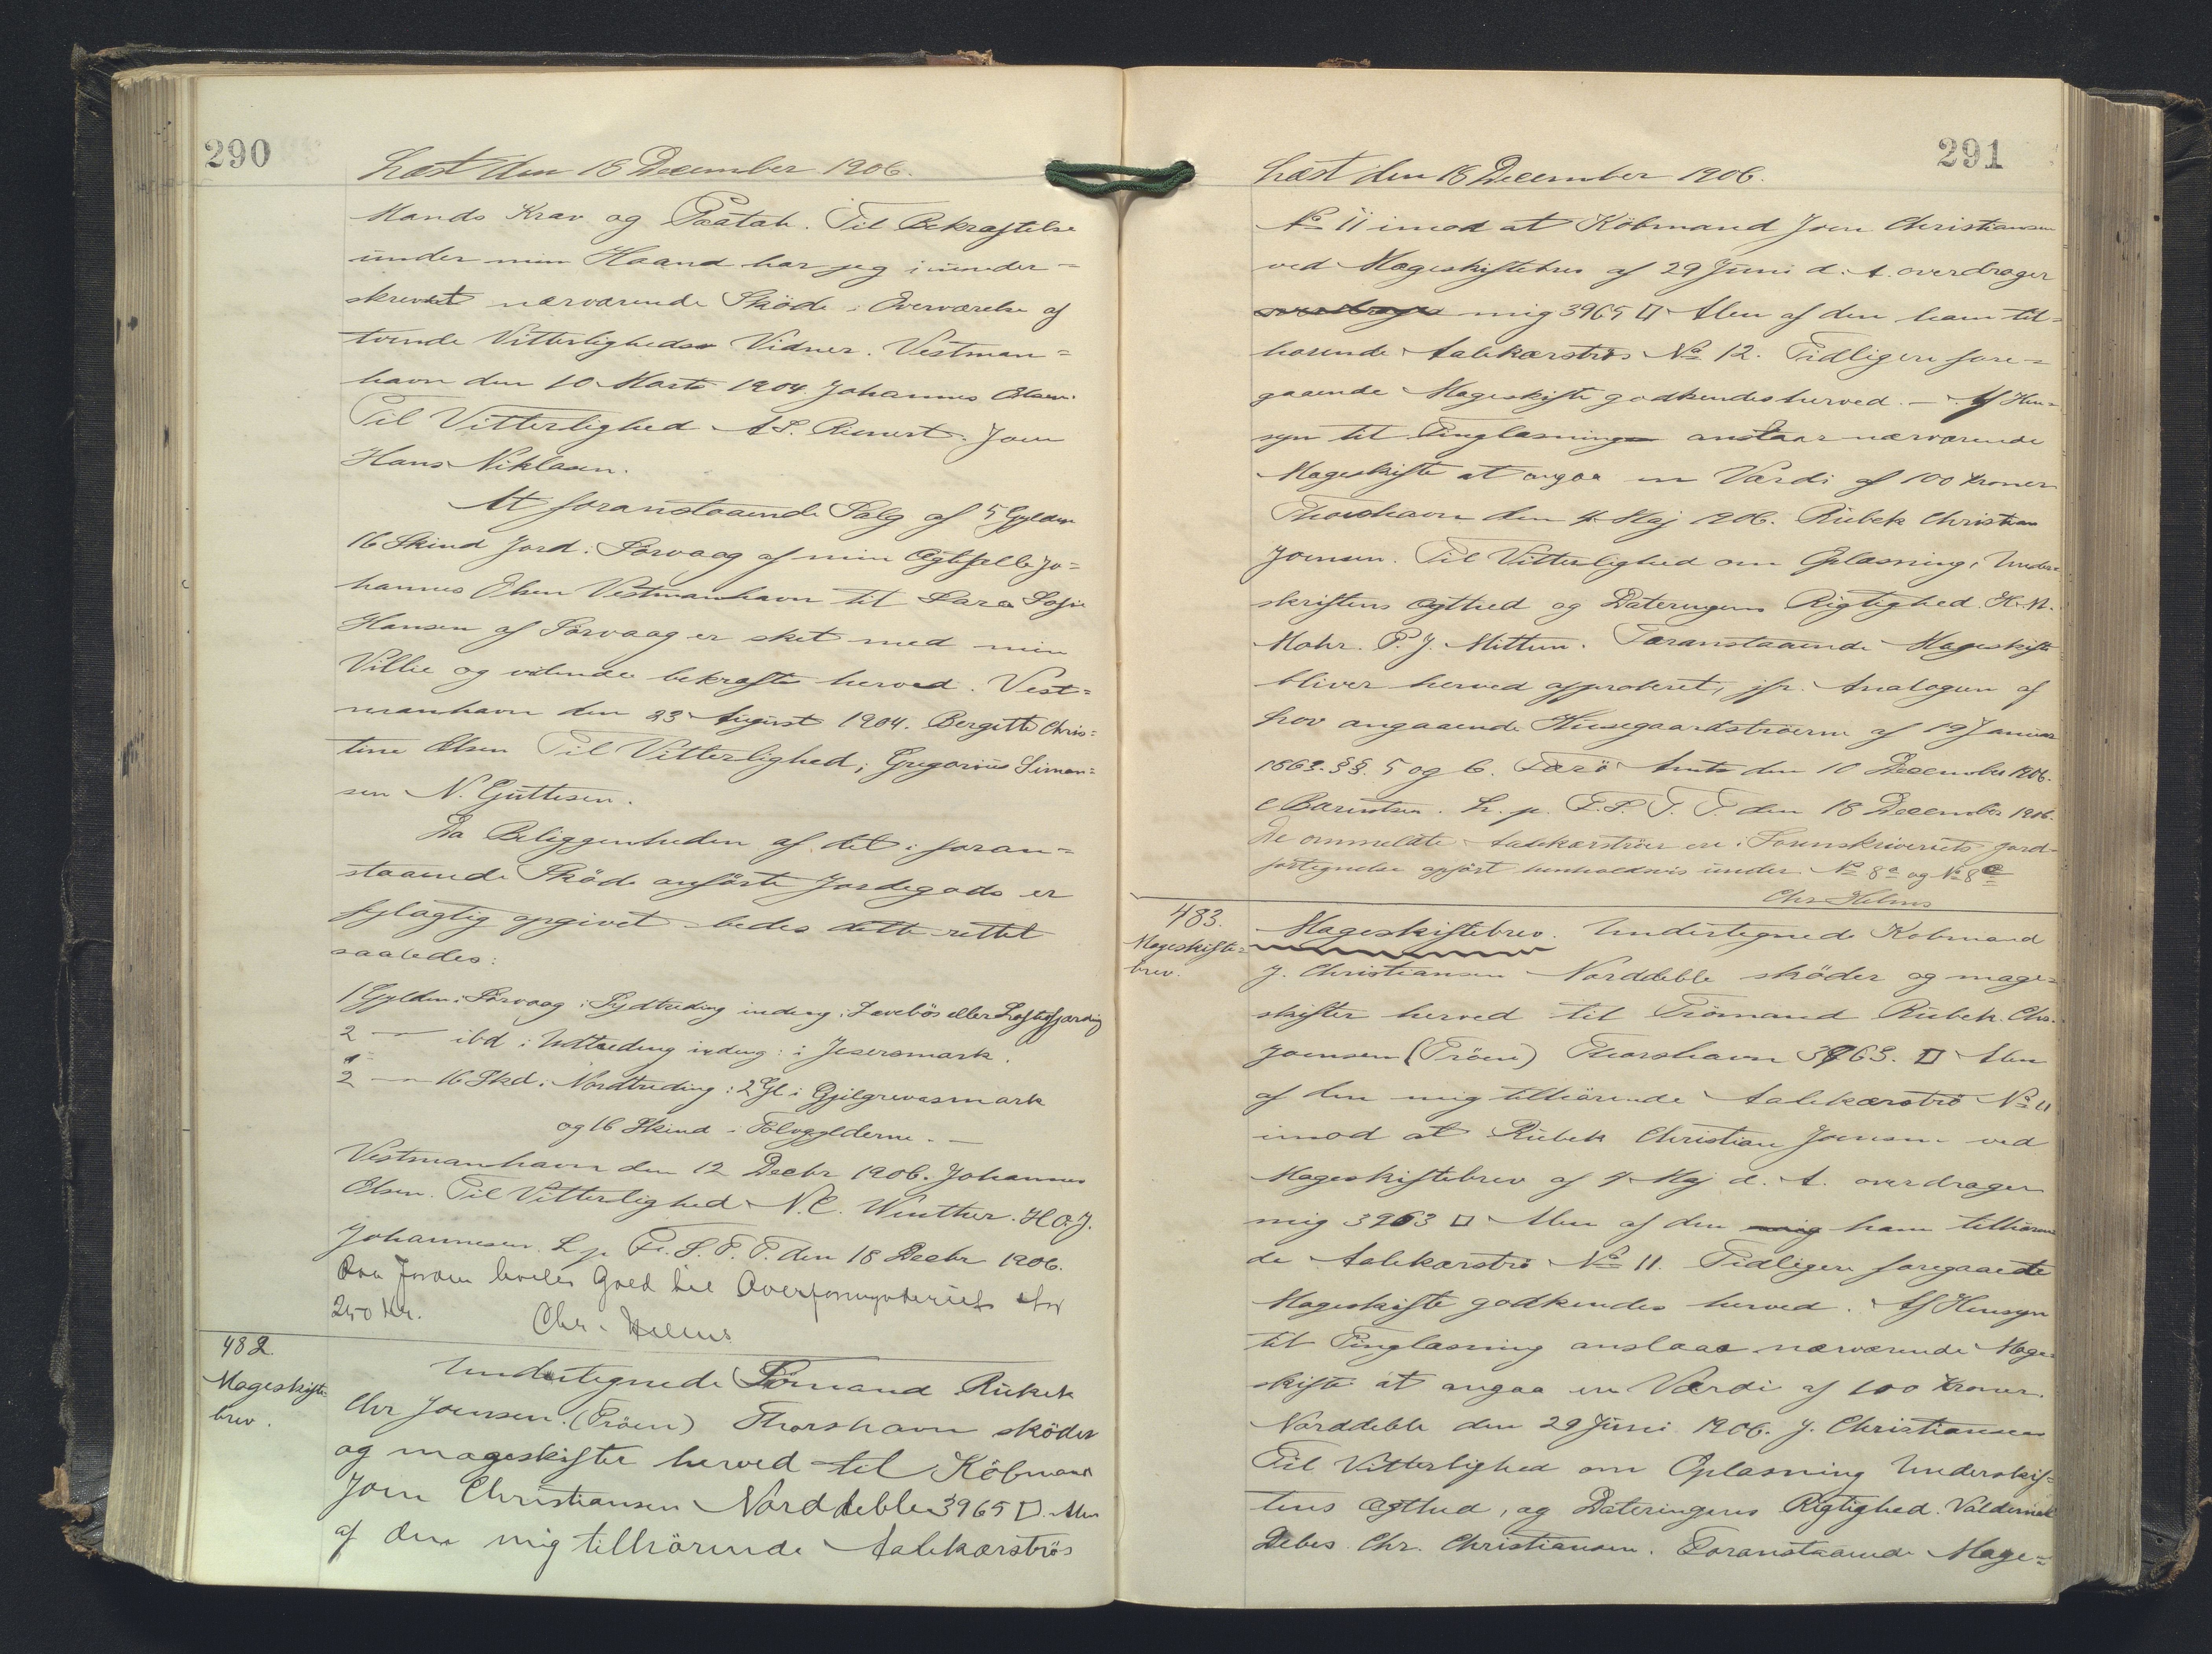 290
Læst den 18 December 1906.
Mands Krav og Paatale. Til Bekræftelse
under min Haand har jeg i under=
skrevet nærværende Skøde i Overværelse af
tvende Vitterligheds Vidner. Vestman=
havn den 10 Marts 1904. Johannes Olsen.
Til Vitterlighed A S. Reinert. Joen
Hans Niklasen.
At foranstaaende Salg af 5 Gylden
16 Skind Jord i Sörvaag af min Ægtefælle Jo=
hannes Olsen Vestmanhavn til Sara Sofie
Hansen af Sörvaag er sket med min
Villie og vidende bekræftes herved. Vest=
manhavn den 23 August 1904. Bergitte Chris=
tine Olsen Til Vitterlighed; Gregorius Simon=
sen N. Guttesen.
Da Beliggenheden af det i foran=
staaende Skøde anførte Jordegods er
fejlagtig opgivet bedes dette rettet
saaledes:
1 Gylden i Sörvaag i Sydtreding indeng i
2 — ibd i Udtreding indeng: i Jesersmark.
2 — 16 Skd. i Nordtreding: 2 Gl i Gjilgrevasmark
og 16 Skind i Tolvgylderne. —
Vestmanhavn den 12 Decbr 1906. Johannes
Olsen. Til Vitterlighed N.C. Winther. H O. J.
Johannesen. L. p. F. S. T. T. den 18 Decbr 1906.
Paa Jorden hviler Gæld til Overformynderiet stor
250 Kr. Chr. Helms
482.
Mageskifte
brev.
Undertegnede Trömand Rubek
Chr Joensen. (Tröen) Thorshavn sköder
og mageskifter herved til Köbmand
Joen Christiansen Norddeble 3965 □. Alen
af den mig tilhörende Aalekærströs
291
Læst den 18 December 1906.
No 11 imod at Köbmand Joen Christiansen
ved Mageskiftebrev af 29 Juni d. A. overdrager
overdrager mig 3965 □ Alen af den ham til=
hørende Aalekærströs No 12. Tidligere fore=
gaaende Mageskifte godkendes herved. — Af Hen=
syn til Tinglæsning anslaar nærværende
Mageskifte at angaa en Værdi af 100 Kroner
Thorshavn den 4 Maj 1906. Rubek Christian
Joensen. Til Vitterlighed om Oplæsning, Under=
skriftens Ægthed og Dateringens Rigtighed. H. N.
Mohr. P. J. Mittun. Foranstaaende Mageskifte
bliver herved approberet, jfr. Analogien af
Lov angaaende Husegaardströerne af 19 Januar
1863. §§. 5 og 6. Færö Amt den 10 December 1906.
C Bærentsen. L. p. F. S. T. T. den 18 December 1906.
De ommeldte Aalekærströer ere i Sorenskriveriets Jord-
fortegnelse opført henholdsvis under No 8a og No 8e
Chr Helms
483.
Mageskifte=
brev.
Mageskiftebrev. Undertegnede Kobmand
J. Christiansen Norddeble sköder og mage=
skifter herved til Trömand Rubek Chr.
Joensen (Tröen) Thorshavn 3963. □ Alen
af den mig tilhörende Aalekærströ No 11
imod at Rubek Christian Joensen ved
Mageskiftebrev af 4 Maj d. A. overdrager
mig 3963 □ Alen af den mig ham tilhören
de Aalekærströ No 11. Tidligere foregaaede
Mageskifte godkendes herved. Af Hensyn
til Tinglæsning anslaas nærværende Mage=
skifte at angaa en Værdi af 100 Kroner.
Norddeble den 29 Juni 1906. J. Christiansen
Til Vitterlighed om Oplæsning Underskrif=
tens Ægthed, og Dateringens Rigtighed. Valdemar
Debes. Chr. Christiansen. Foranstaaende Mage=